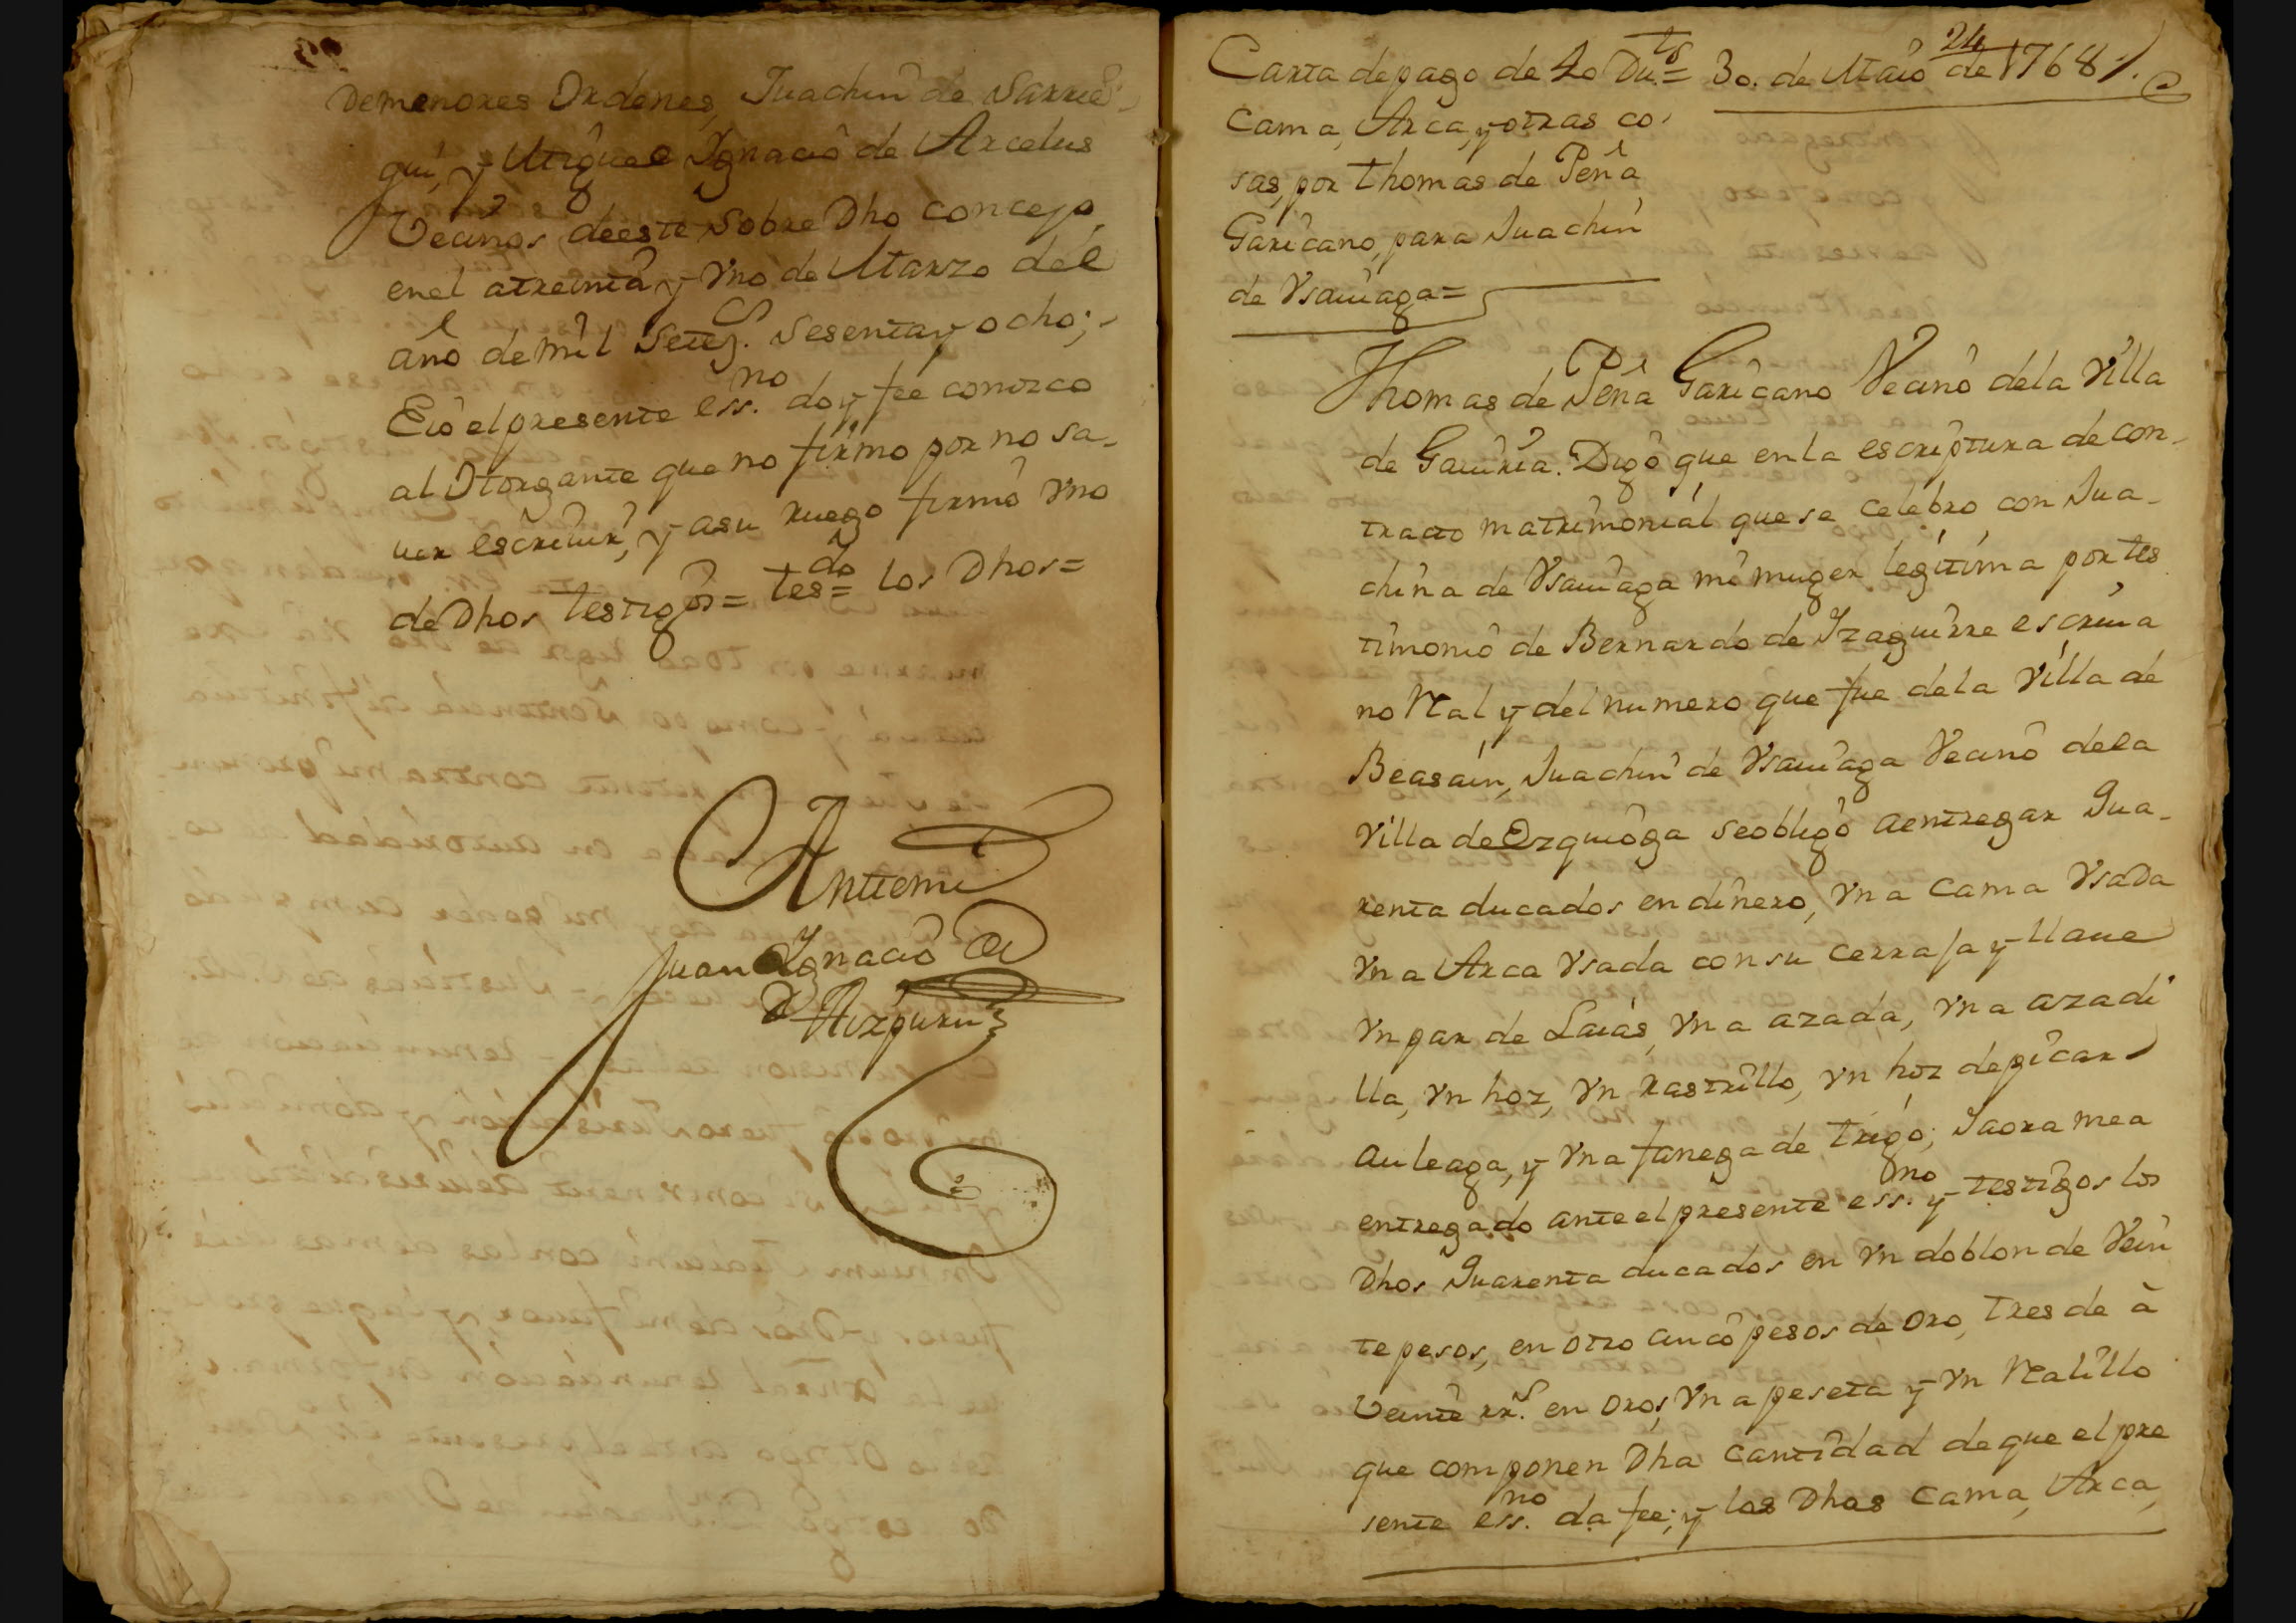 de menores Ordenes, Juachin de Sarrie-
gui, y Miguel Ignacio de Arcelus
Vecinos de este sobre Dho concejo
en el a treinta y Vno de Marzo del
año de mil Seteζ.s Sesenta y ocho;
E io el presente ess.no doy fee conozco
al Otorgante que no firmo por no sa-
uer escriuir, y a su ruego firmó Vno
de Dhos testigos= tes=do los Dhos=
Antemi
Juan Ignacio de
Aizpuru
24
Carta de pago de 40 Du.s= 30. de Maio de 1768
Cama, Arca, y otras co-
sas, por Thomas de Peña
Garicano, para Juachin
de Vsauiaga=
Thomas de Peña Garicano Vecino de la Villa
de Gauiria. Digo que en la escriptura de con-
tracto matrimonial que se celebro con Jua-
china de Vsauiaga mi muger legitima por tes
timonio de Bernardo de Yzaguirre escriua
no Real y del numero que fue de la Villa de
Beasain, Juachin de Vsauiaga Vecino de la
Villa de Ezquioga se obligó a entregar Qua-
renta ducados en dinero, Vna Cama Vsada
Vna Arca Vsada con su cerraja y llaue
Vn par de Laias, Vna azada, Vna azadi
lla, Vn hoz, Vn Rastrillo, Vn hoz de picar
auleaga, y Vna fanega de trigo; I aora me a
entregado ante el presente ess.no y testigos los
Dhos Quarenta ducados en Vn doblon de Vein
te pesos, en otro cinco pesos de Oro, tres de à
Veinte rr.s en Oro, Vna peseta y Vn Realillo
que componen Dha Cantidad de que el pre
sente ess.no da fee; y las Dhas Cama, Arca,